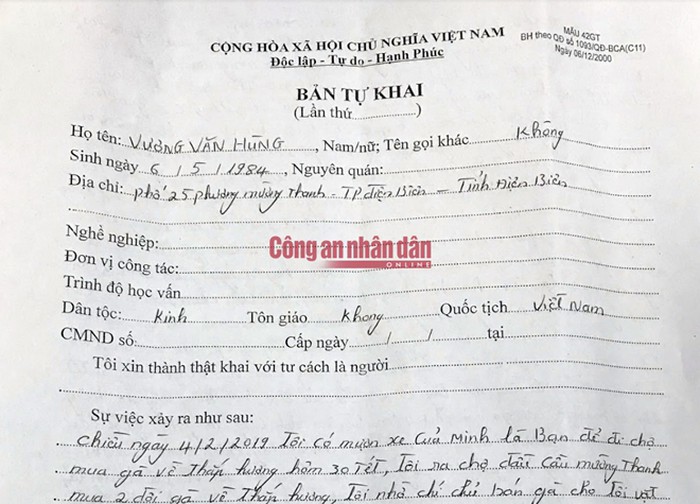 CỘNG HÒA XÃ HỘI CHỦ NGHĨA VIỆT NAM
Độc lập - Tự do - Hạnh Phúc
MẪU 42GT
BH theo QĐ số 1093/QĐ-BCA(C11)
Ngày 06/12/2000
BẢN TỰ KHAI
(Lần thứ..............)
Họ tên: VƯƠNG VĂN HÙNG, Nam/nữ; Tên gọi khác Không
Sinh ngày 6/5/1984, Nguyên quán:
Địa chỉ: phố 25 phường mường Thanh - TP điện Biên - Tỉnh Điện Biên
Nghề nghiệp:
Công an nhân dân
ONLINE
Đơn vị công tác:
Trình độ học vấn
Dân tộc: Kinh Tôn giáo Không Quốc tịch Việt Nam
CMND số: Cấp ngày / / tại
Tôi xin thành thật khai với tư cách là người
Sự việc xảy ra như sau:
Chiều ngày 4/2/2019 Tôi có mượn xe Của Minh là Bạn để đi chợ
mua gà về Thắp hương hôm 30 Tết, Tôi ra chợ đầu Cầu mường Thanh
mua 2 đôi gà về Thắp hương, Tôi nhờ chị chủ bán gà cho tôi vặt